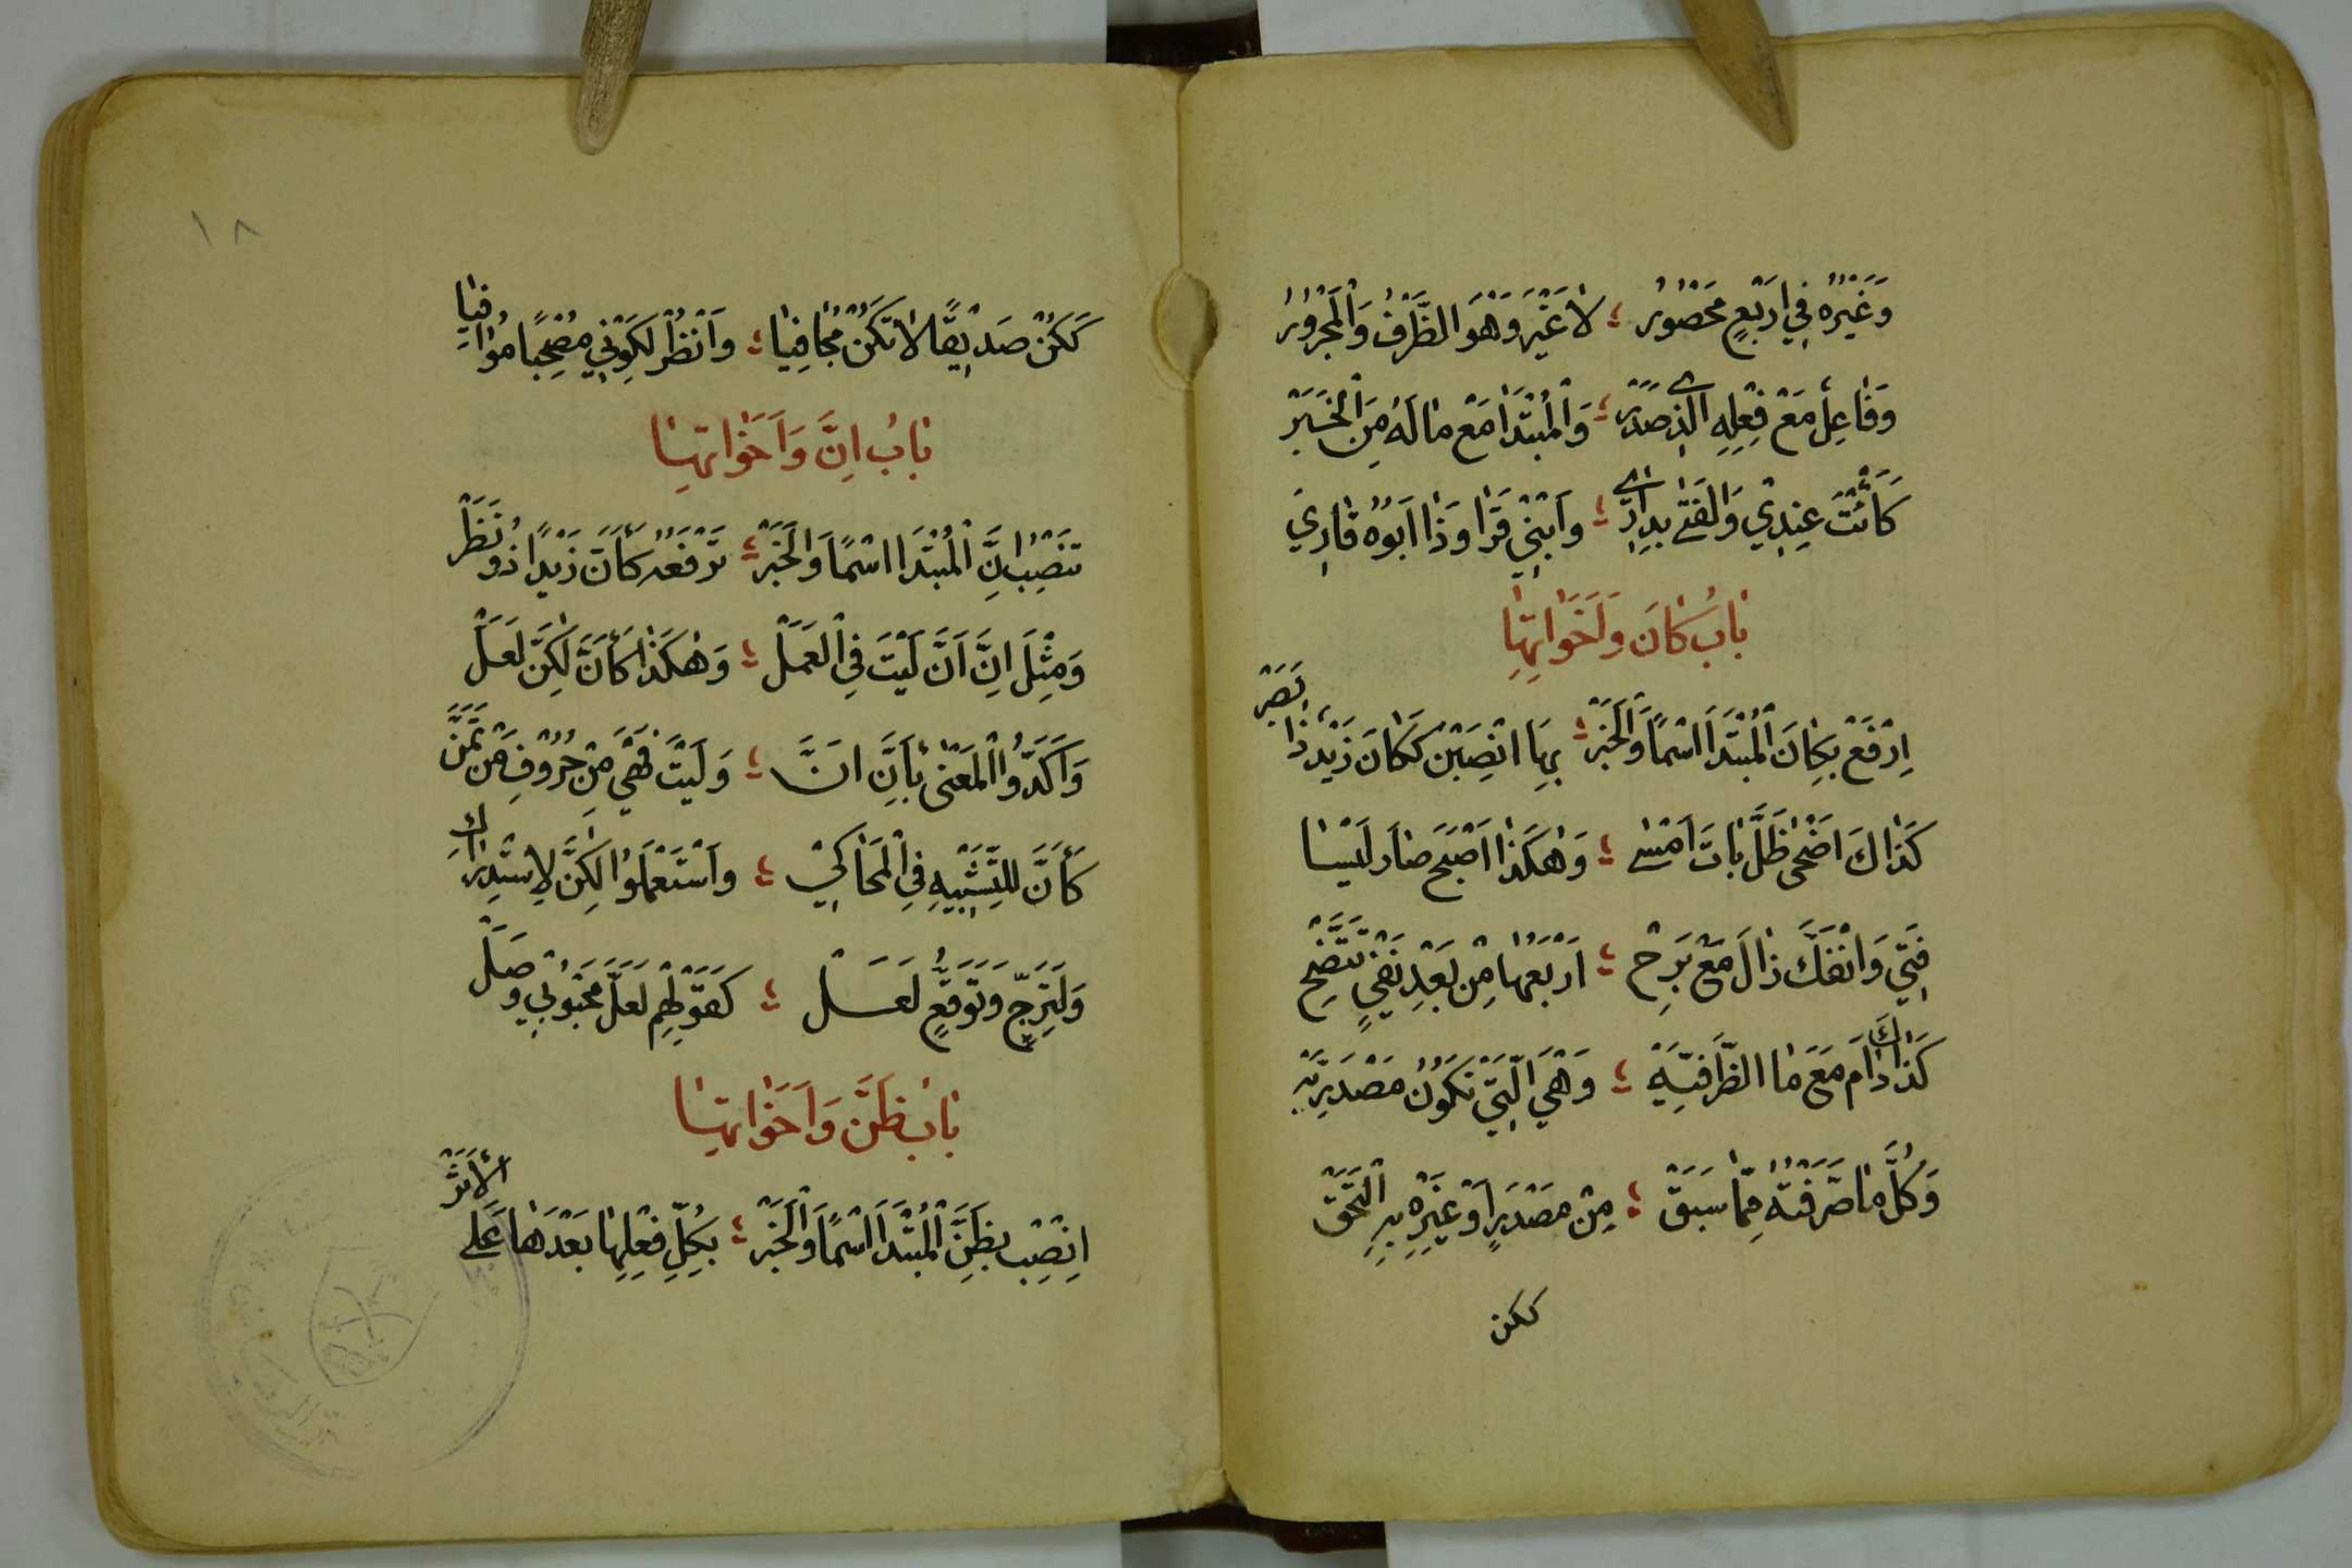 وَغَيْرُهُ فِي اَرْبَعٍ مَحْصُوْرُ ؛ لَا غَيْرَ وَهْوَ الظَّرْفُ وَالْمَجْرُوْرُ
وَفَاعِلٌ مَعْ فِعْلِهِ الَّذِي صَدَرْ ؛ وَالْمُبْتَدَا مَعْ مَا لَهُ مِنَ الْخَبَرْ
كَاَنْتَ عِنْدِيْ وَالْفَتَى بِدَارِي ؛ وَابْنِيْ قَرَا وَذَا اَبُوْهُ قَارِيْ
بَابُ كَانَ وَاَخَوَاتِهَا
اِرْفَعْ بِكَانَ الْمُبْتَدَا اسْمًا وَالْخَبَرْ ؛ بِهَا انْصِبَنْ كَكَانَ زَيْدٌ ذَا بَصَرْ
كَذَاكَ اَضْحَى ظَلَّ بَاتَ اَمْسَى ؛ وَهٰكَذَا اَصْبَحَ صَارَ لَيْسَا
فَتِئَ وَانْفَكَّ زَالَ مَعْ بَرِحْ ؛ اَرْبَعُهَا مِنْ بَعْدِ نَفْيٍ تَتَّضِحْ
كَذَاكَ دَامَ مَعَ مَا الظَّرْفِيَّهِ ؛ وَهْيَ الَّتِيْ تَكُوْنُ مَصْدَرِيَّهِ
وَكُلُّ مَا صَرَّفْتَهُ مِمَّا سَبَقْ ؛ مِنْ مَصْدَرٍ اَوْ غَيْرِهِ بِهِ الْتَحَقْ
ككن
١٨
كَكُنْ صَدِيْقًا لَا تَكُنْ مُجَافِيَا ؛ وَانْظُرْ لِكَوْنِيْ مُصْحِبًا مُوَافِيَا
بَابُ اِنَّ وَاَخَوَاتِهَا
تَنْصِبُ اِنَّ الْمُبْتَدَا اسْمًا وَالْخَبَرْ ؛ تَرْفَعُهُ كَاَنَّ زَيْدًا ذُوْ نَظَرْ
وَمِثْلَ اِنَّ اَنَّ لَيْتَ فِي الْعَمَلْ ؛ وَهٰكَذَا كَأَنَّ لٰكِنَّ لَعَلْ
وَاَكَّدُوا الْمَعْنَى بِأَنَّ اِنَّا ؛ وَلَيْتَ فَهْيَ مِنْ حُرُوْفِ مَنْ تَمَنَّ
كَأَنَّ لِلتَّشْبِيْهِ فِي الْمُحَاكِيْ ؛ وَاسْتَعْمَلُوْا لٰكِنَّ لِاسْتِدْرَاكِ
وَلِتَرَجٍّ وَتَوَقُّعٍ لَعَلْ ؛ كَقَوْلِهِمْ لَعَلَّ مَحْبُوْبِيْ وَصَلْ
بَابُ ظَنَّ وَاَخَوَاتِهَا
اِنْصِبْ بِظَنَّ الْمُبْتَدَا اسْمًا وَالْخَبَرْ ؛ بِكُلِّ فِعْلِهَا بَعْدَهَا عَلَى الْأَثَرْ